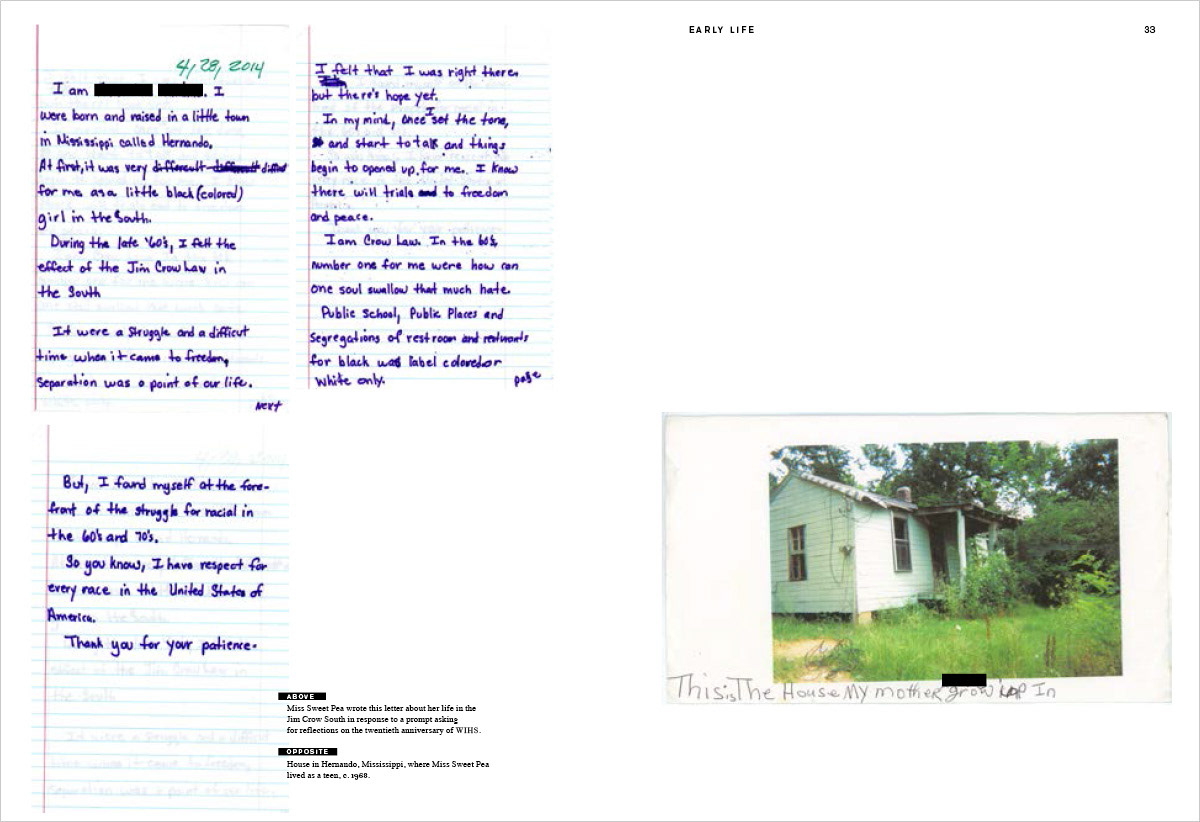 4/28, 2014
I am . I
were born and raised in a little town
in Mississippi called Hernando.
At first, it was very
for me as a little black (colored)
girl in the South.
During the late '60's, I felt the
effect of the Jim Crow Law in
the South
It were a struggle and a difficut
time when it came to freedom,
Separation was a point of our life.
Next
I felt that I was right there
but there's hope yet.
In my mind, once I set the tone,
and start to talk and things
begin to opened up for me. I know
there will trials and to freedom
and peace.
I am Crow Law. In the 60's,
number one for me were how can
one soul swallow that much hate.
Public School, Public Places and
Segregations of restroom and
for black was label colored or
White only.
page
But, I found myself at the fore-
front of the struggle for racial in
the 60's and 70's.
So you know, I have respect for
every race in the United States of
America.
Thank you for your patience.
ABOVE
Miss Sweet Pea wrote this letter about her life in the
Jim Crow South in response to a prompt asking
for reflections on the twentieth anniversary of WIHS.
OPPOSITE
House in Hernando, Mississippi, where Miss Sweet Pea
lived as a teen, c. 1968.
EARLY LIFE
33
This is The House My mother grow up In